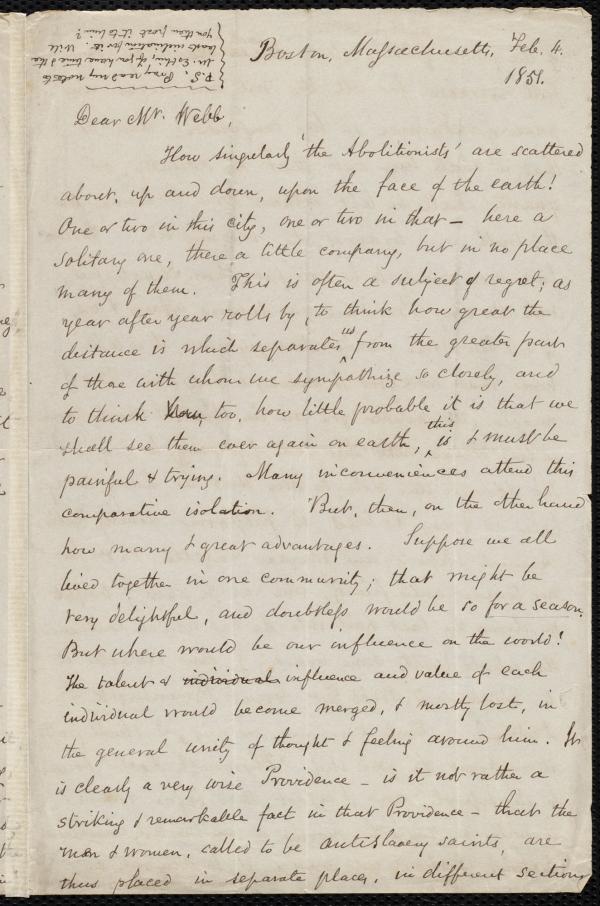 P.S. Pray read my note to
Mr. Estlin, if you have time & the
least inclination for it. Will
you then post it to him?
Boston, Massachusetts, Feb. 4.
1851.
Dear Mr. Webb,
How singularly 'the Abolitionists' are scattered
about, up and down, upon the face of the earth!
One or two in this city, one or two in that – here a
solitary one, there a little company, but in no place
many of them. This is often a subject of regret; as
year after year rolls by, to think how great the
distance is which separates us from the greater part
of those with whom we sympathize so closely, and
to think how, too, how little probable it is that we
shall see them ever again on earth, this is & must be
painful & trying. Many inconveniences attend this
comparative isolation. But, then, on the other hand
how many & great advantages. Suppose we all
lived together in one community; that might be
very delightful, and doubtless would be so for a season.
But where would be our influence on the world!
The talent & individual influence and value of each
individual would become merged, & mostly lost, in
the general unity of thought & feeling around him. It
is clearly a very wise Providence – is it not rather a
striking & remarkable fact in that Providence – that the
men & women, called to be antislavery saints, are
thus placed in separate places, in different sections